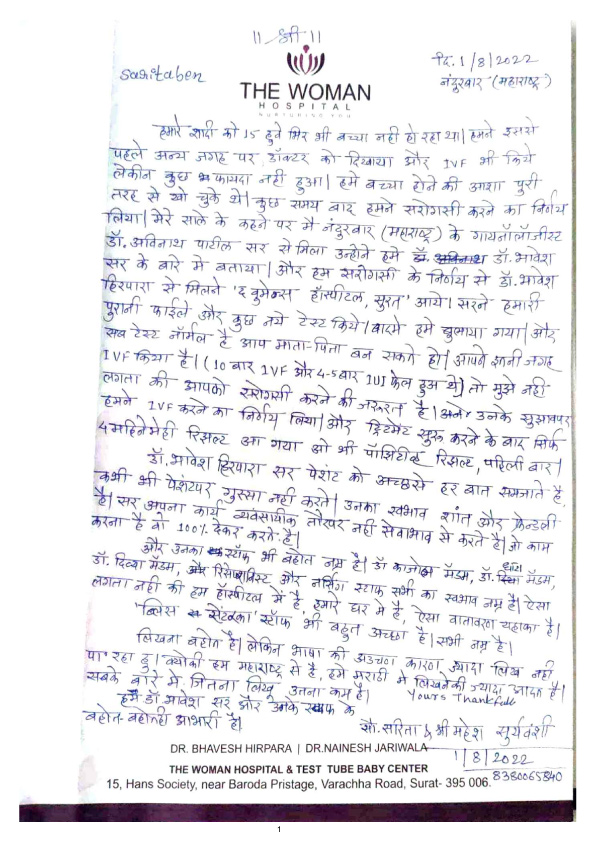 ॥ श्री ॥
दि. 1/8/2022
saritaben
नंदुरबार (महाराष्ट्र)
THE WOMAN
HOSPITAL
NURTURING YOU
हमारे शादी को 15 हुवे फिर भी बच्चा नही हो रहा था। हमने इससे
पहले अन्य जगह पर डॉक्टर को दिखाया और IVF भी किये
लेकीन कुछ फायदा नही हुआ। हमे बच्चा होने की आशा पुरी
तरह से खो चुके थे। कुछ समय बाद हमने सरोगसी करने का निर्णय
लिया। मेरे साले के कहने पर मै नंदुरबार (महाराष्ट्र) के गायनॉलॉजीस्ट
डॉ. अविनाथ पाटील सर से मिला उन्होने हमे डॉ. भावेश
सर के बारे मे बताया। और हम सरोगसी के निर्णय से डॉ. भावेश
हिरपारा से मिलने 'द वुमेन्स हॉस्पीटल, सुरत' आये। सरने हमारी
पुरानी फाईले और कुछ नये टेस्ट किये। बादमे हमे बुलाया गया। और
सब टेस्ट नॉर्मल है आप माता-पिता बन सकते हो। आपने इतनी जगह
IVF किया है। (10 बार IVF और 4-5 बार IUI फेल हुअ थे) तो मुझे नही
लगता की आपको सरोगसी करने की जरूरत है। उनके सुझावपर
हमने IVF करने का निर्णय लिया। और ट्रिटमेंट सुरू करने के बाद सिर्फ
4 महिनेमेही रिझल्ट आ गया ओ भी पॉसिटिव्ह रिझल्ट, पहिली बार।
डॉ. भावेश हिरपारा सर पेशंट को अच्छेसे हर बात समजाते है,
कभी भी पेशंटपर गुस्सा नही करते। उनका स्वभाव शांत और फ्रेन्डली
है। सर अपना कार्य व्यवसायीक तौरपर नही सेवाभाव से करते है। जो काम
करना है वो 100% देकर करते है।
और उनका स्टॉफ भी बहोत नम्र है। डॉ काजोल मॅडम, डॉ. मॅडम,
डॉ. दिव्या मॅडम, और रिसेप्शनिस्ट और नर्सिंग स्टाफ सभी का स्वभाव नम्र है। ऐसा
लगता नही की हम हॉस्पीटल मे है, हमारे घर मे है, ऐसा वातावरण यहाका है।
'ब्लिस सेंटरका' स्टॉफ भी बहुत अच्छा है। सभी नम्र है।
लिखना बहोत है। लेकिन भाषा की अडचण कारण ज्यादा लिख नही
पा रहा हु। क्योकी हम महाराष्ट्र से है, हमे मराठी मे लिखनेकी ज्यादा आदत है।
सबके बारे मे जितना लिखू उतना कम है।
Yours Thankfull
हम डॉ भावेश सर और उनके स्टाफ के
बहोत-बहोतही आभारी है।
सौ. सरिता & श्री महेश सुर्यवंशी
DR. BHAVESH HIRPARA | DR.NAINESH JARIWALA
1/8/2022
THE WOMAN HOSPITAL & TEST TUBE BABY CENTER
8380065840
15, Hans Society, near Baroda Pristage, Varachha Road, Surat- 395 006.
1